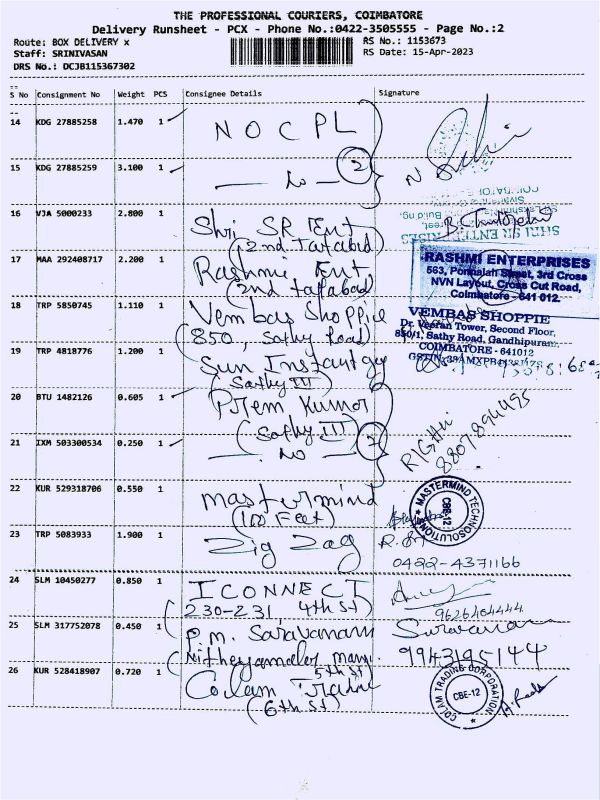 THE PROFESSIONAL COURIERS, COIMBATORE
Delivery Runsheet - PCX - Phone No.:0422-3505555 - Page No.:2
Route: BOX DELIVERY x
Staff: SRINIVASAN
DRS No.: DCJB115367302
RS No.: 1153673
RS Date: 15-Apr-2023
S No Consignment No Weight PCS Consignee Details Signature
14 KDG 27885258 1.470 1 NOCPL
15 KDG 27885259 3.100 1 2
16 VJA 5000233 2.800 1 Shri SR Ent
(2nd Tatabad)
17 MAA 292408717 2.200 1 Rashmi Ent
(2nd Tatabad)
RASHMI ENTERPRISES
563, Ponnaiah Street, 3rd Cross
NVN Layout, Cross Cut Road,
Coimbatore - 641 012.
18 TRP 5850745 1.110 1 Vembas Shoppie
(850, Sathy Road)
VEMBAS SHOPPIE
Tower, Second Floor,
850/1, Sathy Road, Gandhipuram,
COIMBATORE - 641012
19 TRP 4818776 1.200 1 Sun Instant
(Sathy III)
20 BTU 1482126 0.605 1 Prem Kumar
(Sathy III)
21 IXM 503300534 0.250 1
8807894495
22 KUR 529318706 0.550 1 Mastermind
(100 Feet)
MASTERMIND TECHNOSOLUTION
CBE-12
23 TRP 5083933 1.900 1 Zig Zag
0422-4371166
24 SLM 10450277 0.850 1 ICONNECT
(230-231 4th St)
9626464444
25 SLM 317752078 0.450 1 P.M. Saravanan
5th St)
Saravanan
9943195144
26 KUR 528418907 0.720 1 Colam
(6th St)
COLAM TRADING CORPORATION
CBE-12